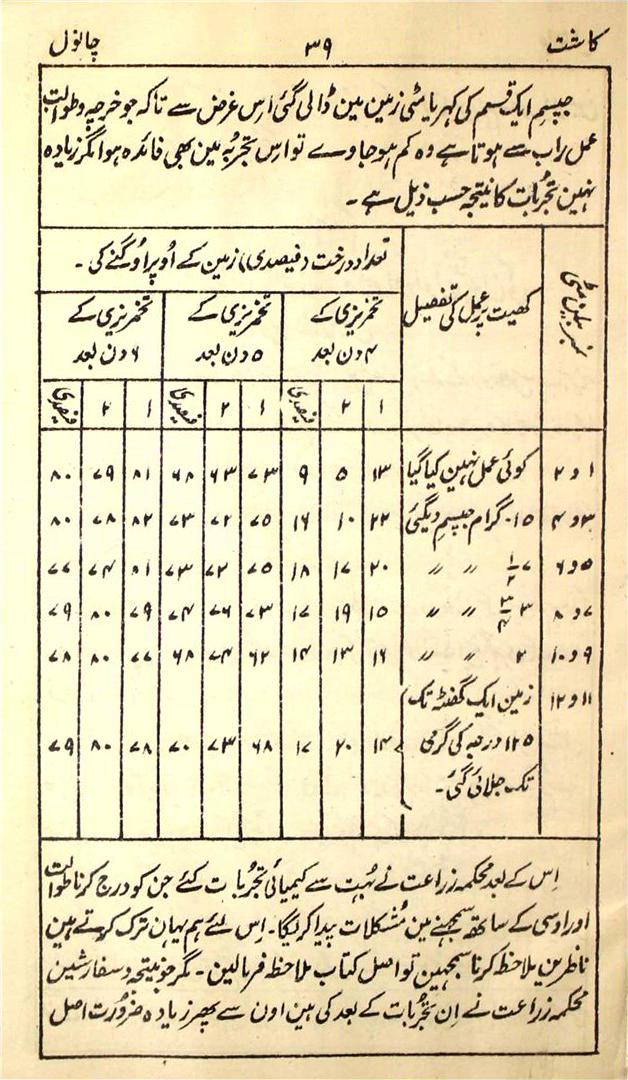 کاشت ۳۹ چانول
جیپسم ایک قسم کی کہریا مٹی زمین مین ڈالی گئی اس غرض سے تاکہ جو خرچہ وطوالت
عمل راب سے ہوتا ہے وہ کم ہو جاوے تو اس تجربہ مین بھی فائدہ ہوا مگر زیادہ
نہین تجربات کا نتیجہ حسب ذیل ہے ۔
کھیت پر عمل کی تفصیل تعداد درخت (فیصدی) زمین کے اُوپر اُوگنے کی ۔
تخمریزی کے ۴ دن بعد تخمریزی کے ۵ دن بعد تخمریزی کے ۶ دن بعد
۱ ۲ فیصدی ۱ ۲ فیصدی ۱ ۲ فیصدی
۱ و ۲ کوئی عمل نہین کیا گیا ۱۳ ۵ ۹ ۷۳ ۶۳ ۶۸ ۸۱ ۷۹ ۸۰
۳ و ۴ ۱۵ گرام جیپسم دیگئی ۲۲ ۱۰ ۱۶ ۷۵ ۷۲ ۷۳ ۸۲ ۷۸ ۸۰
۵ و ۶ ۷ ۱/۲ 〃 〃 ۲۰ ۱۷ ۱۸ ۷۵ ۷۲ ۷۳ ۸۱ ۷۴ ۷۷
۷ و ۸ ۳ ۳/۴ 〃 〃 ۱۵ ۱۹ ۱۷ ۷۳ ۷۶ ۷۴ ۷۹ ۸۰ ۷۹
۹ و ۱۰ ۲ 〃 〃 ۱۶ ۱۳ ۱۴ ۶۲ ۷۴ ۶۸ ۷۷ ۸۰ ۷۸
۱۱ و ۱۲ زمین ایک گھنٹہ تک
۱۲۵ درجہ کی گرمی ۱۴ ۲۰ ۱۷ ۶۸ ۷۳ ۷۰ ۷۸ ۸۰ ۷۹
تک جلائی گئی ۔
اِس کے بعد محکمہ زراعت نے بُہت سے کیمیائی تجربات کئے جن کو درج کرنا طوالت
اور اوسی کے ساتھ سمجھنے مین مُشکلات پیدا کریگا ۔ اِس لئے ہم یہان ترک کرتے ہین
ناظرین ملاحظہ کرنا سمجھین تو اصل کتاب ملاحظہ فرمالین ۔ مگر جو نتیجہ و سفارشین
محکمہ زراعت نے اِن تجربات کے بعد کی ہین اون سے پھر زیادہ ضرورت اصل